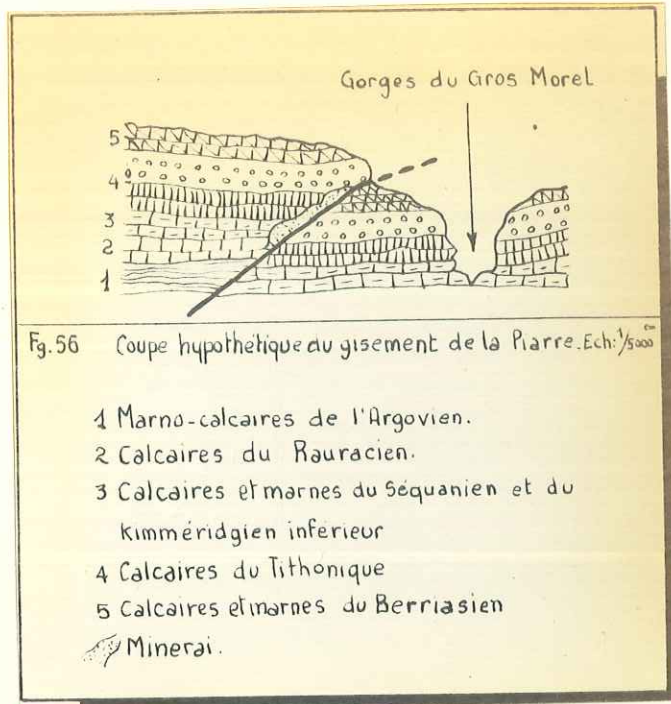 Gorges du Gros Morel
5
4
3
2
1
Fg.56 Coupe hypothétique du gisement de la Piarre. Ech: 1/5000
1 Marno-calcaires de l'Argovien.
2 Calcaires du Rauracien.
3 Calcaires et marnes du Séquanien et du
Kimméridgien inférieur
4 Calcaires du Tithonique
5 Calcaires et marnes du Berriasien
Minerai.